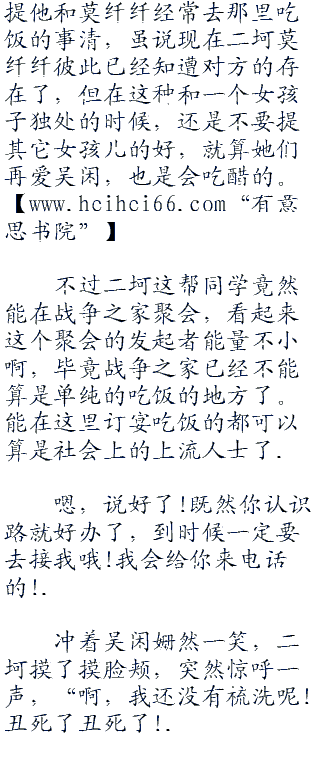 提他和莫纤纤经常去那里吃
饭的事清，虽说现在二坷莫
纤纤彼此已经知遭对方的存
在了，但在这种和一个女孩
子独处的时候，还是不要提
其它女孩儿的好，就算她们
再爱吴闲，也是会吃醋的。
【www.hcihci66.com“有意
思书院”】
不过二坷这帮同学竟然
能在战争之家聚会，看起来
这个聚会的发起者能量不小
啊，毕竟战争之家已经不能
算是单纯的吃饭的地方了。
能在这里订宴吃饭的都可以
算是社会上的上流人士了.
嗯，说好了!既然你认识
路就好办了，到时候一定要
去接我哦!我会给你来电话
的!.
冲着吴闲姗然一笑，二
坷摸了摸脸颊，突然惊呼一
声，“啊，我还没有梳洗呢!
丑死了丑死了!.